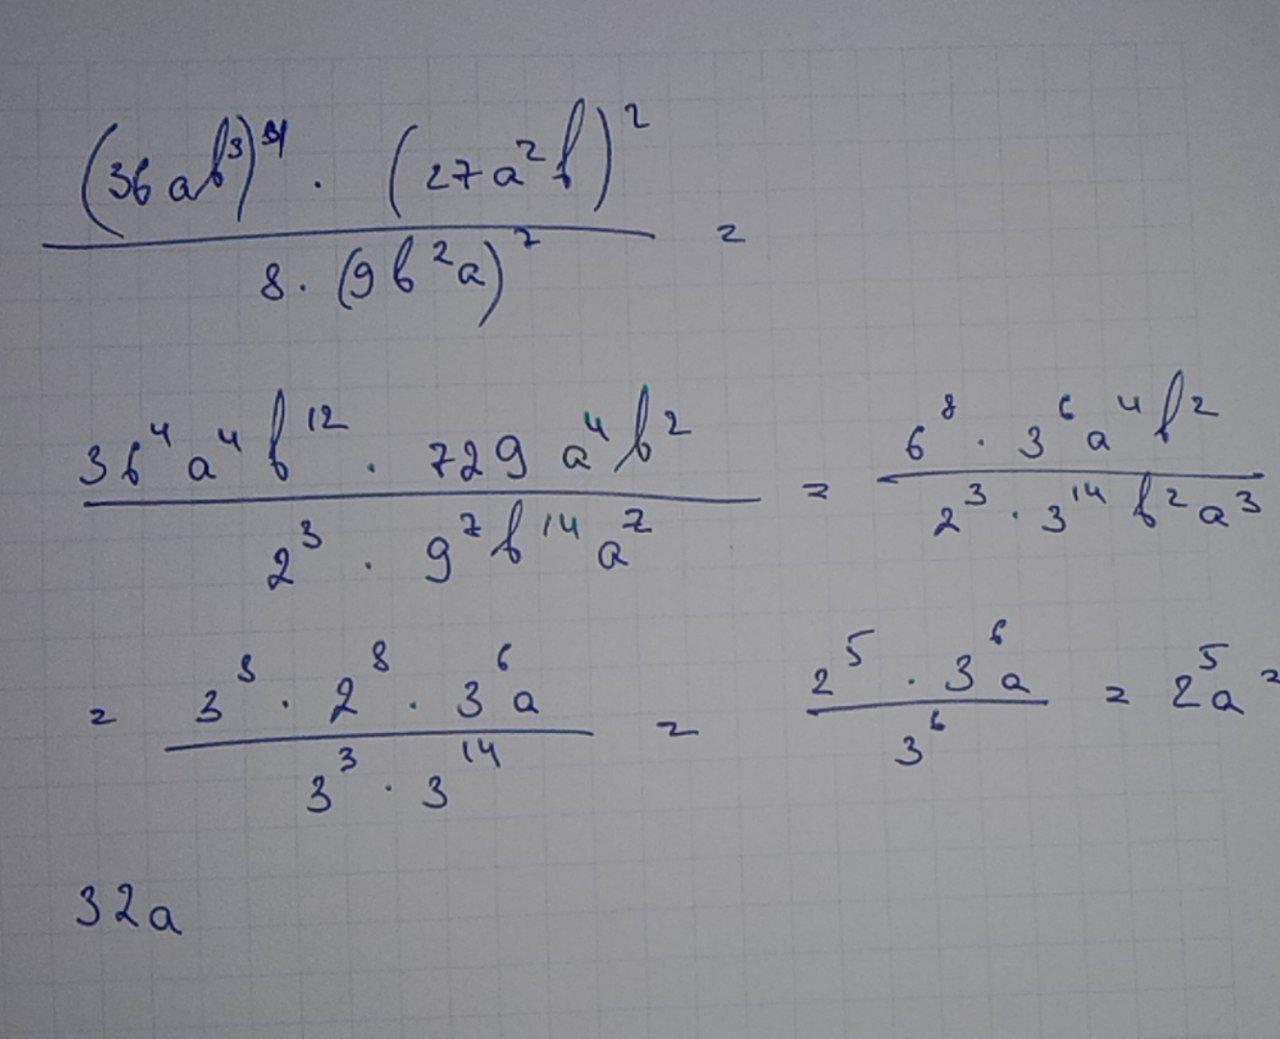 (36ab³)⁴ · (27a²b)² / 8 · (9b²a)⁷ =
36⁴a⁴b¹² · 729a⁴b² / 2³ · 9⁷b¹⁴a⁷ = 6⁸ · 3⁶a⁴b² / 2³ · 3¹⁴b²a³
= 3⁸ · 2⁸ · 3⁶a / 3³ · 3¹⁴ = 2⁵ · 3⁶a / 3⁶ = 2⁵a =
32a